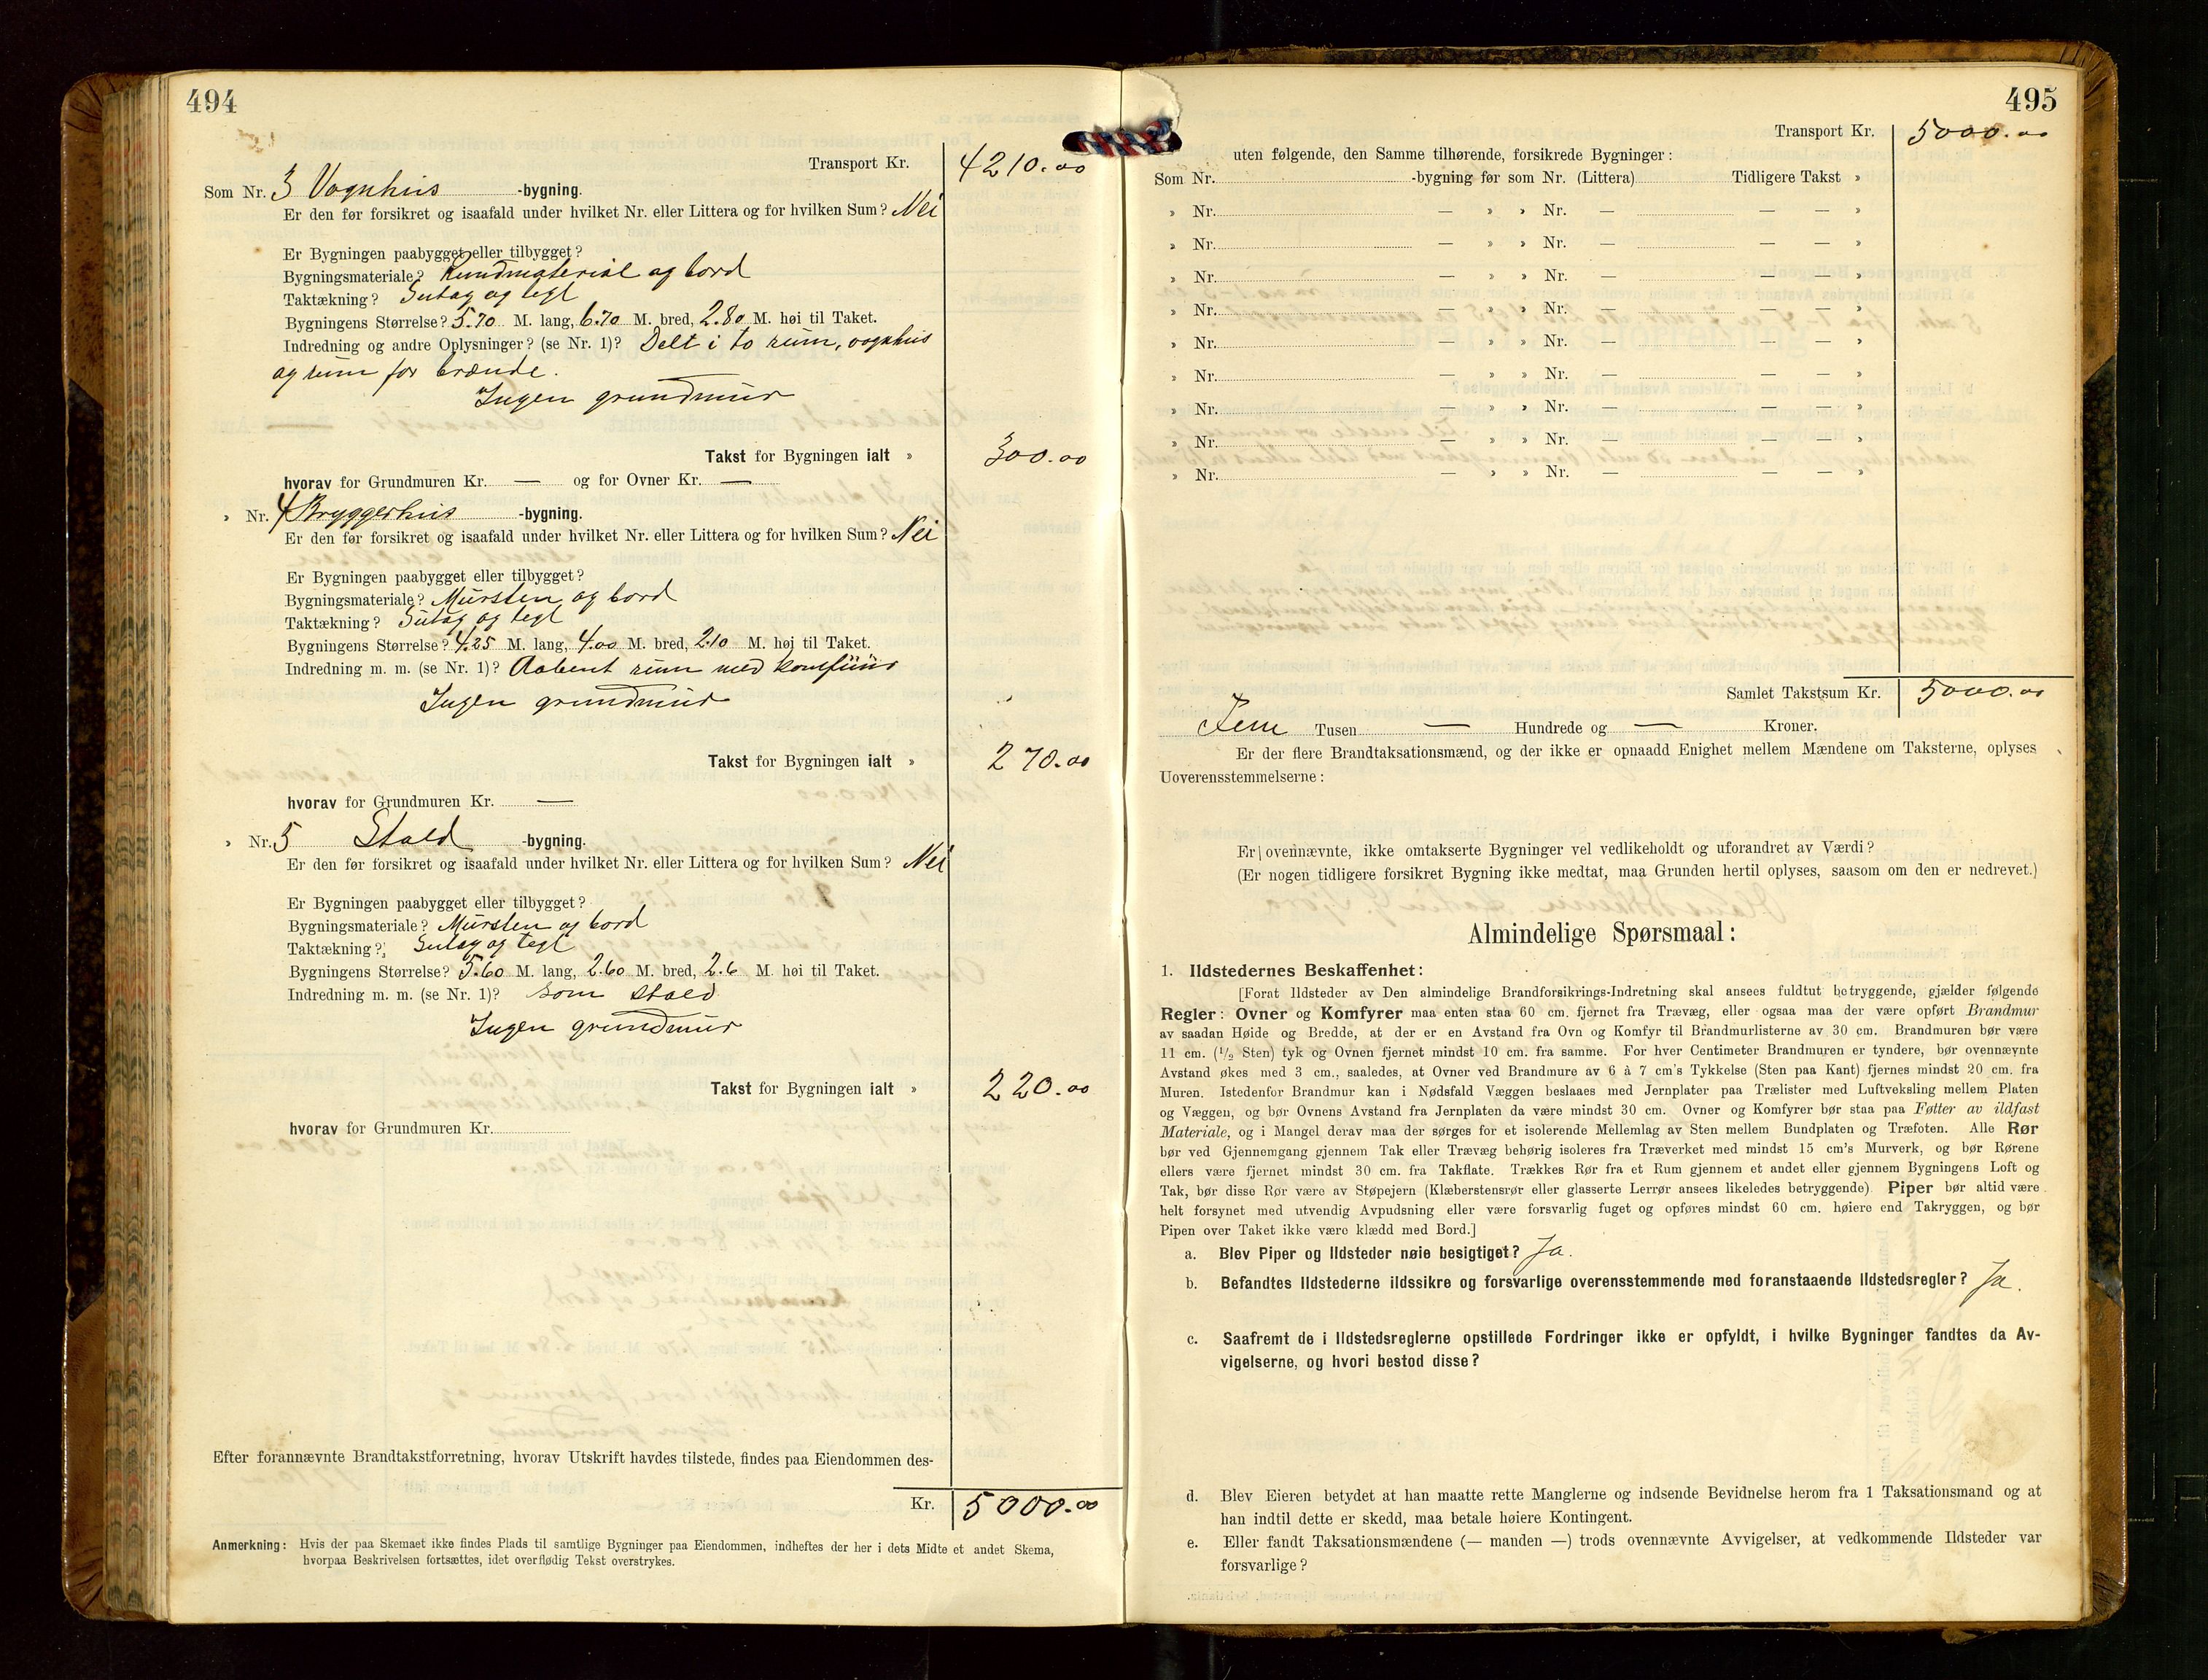 494
Transport Kr. 4210.00
Som Nr. 3 Vognhus -bygning.
Er den før forsikret og isaafald under hvilket Nr. eller Littera og for hvilken Sum? Nei
Er Bygningen paabygget eller tilbygget?
Bygningsmateriale? Bundmaterial og bord
Taktækning? Sutag og tegl
Bygningens Størrelse? 5.70 M. lang, 6.70 M. bred, 2.80 M. høi til Taket.
Indredning og andre Oplysninger? (se Nr. 1)? Delt i to rum, vognhus
og rum for brænde.
Ingen grundmur
Takst for Bygningen ialt » 300.00
hvorav for Grundmuren Kr. — og for Ovner Kr. —
» Nr. 4 Bryggerhus -bygning.
Er den før forsikret og isaafald under hvilket Nr. eller Littera og for hvilken Sum? Nei
Er Bygningen paabygget eller tilbygget?
Bygningsmateriale? Mursten og bord
Taktækning? Sutag og tegl
Bygningens Størrelse? 4.25 M. lang, 4.00 M. bred, 2.10 M. høj til Taket.
Indredning m. m. (se Nr. 1)? Aabent rum med komfuur
Ingen grundmur
Takst for Bygningen ialt » 270.00
hvorav for Grundmuren Kr. —
» Nr. 5 Stald -bygning.
Er den før forsikret og isaafald under hvilket Nr. eller Littera og for hvilken Sum? Nei
Er Bygningen paabygget eller tilbygget?
Bygningsmateriale? Mursten og bord
Taktækning? Sutag og tegl
Bygningens Størrelse? 5.60 M. lang, 2.60 M. bred, 2.6 M. høi til Taket.
Indredning m. m. (se Nr. 1)? som stald
Ingen grundmur
Takst for Bygningen ialt » 220.00
hvorav for Grundmuren Kr.
Efter forannævnte Brandtakstforretning, hvorav Utskrift havdes tilstede, findes paa Eiendommen des-
Kr. 5000.00
Anmerkning: Hvis der paa Skemaet ikke findes Plads til samtlige Bygninger paa Eiendommen, indheftes der her i dets Midte et andet Skema,
hvorpaa Beskrivelsen fortsættes, idet overflødig Tekst overstrykes.
495
Transport Kr. 5000.00
uten følgende, den Samme tilhørende, forsikrede Bygninger:
Som Nr. -bygning før som Nr. (Littera) Tidligere Takst »
» Nr. — » » Nr. — — — »
» Nr. — » » Nr. — — — »
» Nr. — » » Nr. — — — »
» Nr. — » » Nr. — — — »
» Nr. — » » Nr. — — — »
» Nr. — » » Nr. — — — »
» Nr. — » » Nr. — — — »
» Nr. — » » Nr. — — — »
» Nr. — » » Nr. — — — »
Samlet Takstsum Kr. 5000.00
Fem Tusen — Hundrede og — Kroner.
Er der flere Brandtaksationsmænd, og der ikke er opnaadd Enighet mellem Mændene om Taksterne, oplyses
Uoverensstemmelserne:
Er ovennævnte, ikke omtakserte Bygninger vel vedlikeholdt og uforandret av Værdi?
(Er nogen tidligere forsikret Bygning ikke medtat, maa Grunden hertil oplyses, saasom om den er nedrevet.)
Almindelige Spørsmaal:
1. Ildstedernes Beskaffenhet:
[Forat Ildsteder av Den almindelige Brandforsikrings-Indretning skal ansees fuldtut betryggende, gjælder følgende
Regler: Ovner og Komfyrer maa enten staa 60 cm. fjernet fra Trævæg, eller ogsaa maa der være opført Brandmur
av saadan Høide og Bredde, at der er en Avstand fra Ovn og Komfyr til Brandmurlisterne av 30 cm. Brandmuren bør være
11 cm. (1/2 Sten) tyk og Ovnen fjernet mindst 10 cm. fra samme. For hver Centimeter Brandmuren er tyndere, bør ovennævnte
Avstand økes med 3 cm., saaledes, at Ovner ved Brandmure av 6 à 7 cm's Tykkelse (Sten paa Kant) fjernes mindst 20 cm. fra
Muren. Istedenfor Brandmur kan i Nødsfald Væggen beslaaes med Jernplater paa Trælister med Luftveksling mellem Platen
og Væggen, og bør Ovnens Avstand fra Jernplaten da være mindst 30 cm. Ovner og Komfyrer bør staa paa Føtter av ildfast
Materiale, og i Mangel derav maa der sørges for et isolerende Mellemlag av Sten mellem Bundplaten og Træfoten. Alle Rør
bør ved Gjennemgang gjennem Tak eller Trævæg behørig isoleres fra Træverket med mindst 15 cm's Murverk, og bør Rørene
ellers være fjernet mindst 30 cm. fra Takflate. Trækkes Rør fra et Rum gjennem et andet eller gjennem Bygningens Loft og
Tak, bør disse Rør være av Støpejern (Klæberstensrør eller glasserte Lerrør ansees likeledes betryggende) Piper bør altid være
helt forsynet med utvendig Avpudsning eller være forsvarlig fuget og opføres mindst 60 cm. høiere end Takryggen, og bør
Pipen over Taket ikke være klædd med Bord.]
a. Blev Piper og Ildsteder nøie besigtiget? Ja.
b. Befandtes Ildstederne ildssikre og forsvarlige overensstemmende med foranstaaende Ildstedsregler? Ja.
c. Saafremt de i Ildstedsreglerne opstillede Fordringer ikke er opfyldt, i hvilke Bygninger fandtes da Av-
vigelserne, og hvori bestod disse?
d. Blev Eieren betydet at han maatte rette Manglerne og indsende Bevidnelse herom fra 1 Taksationsmand og at
han indtil dette er skedd, maa betale høiere Kontingent.
e. Eller fandt Taksationsmændene (— manden —) trods ovennævnte Avvigelser, at vedkommende Ildsteder var
forsvarlige?